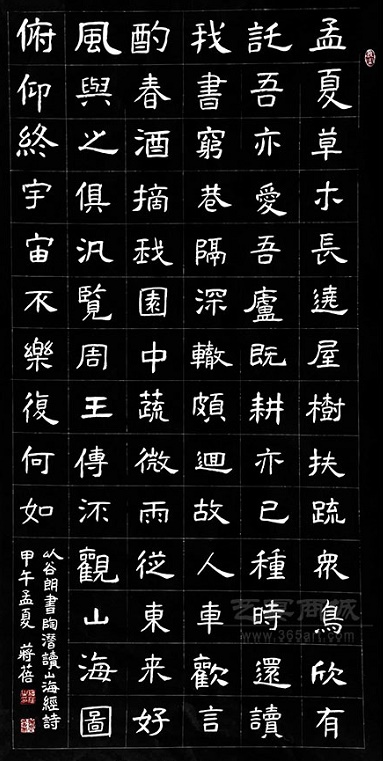 孟夏草木長遶屋樹扶疏衆鳥欣有
託吾亦愛吾廬既耕亦已種時還讀
我書窮巷隔深轍頗迴故人車歡言
酌春酒摘我園中蔬微雨從東来好
風與之俱汎覧周王傳流觀山海圖
俯仰終宇宙不樂復何如
以谷朗書陶潛讀山海經詩
甲午孟夏 蔣蓓
商城
www.365art.com